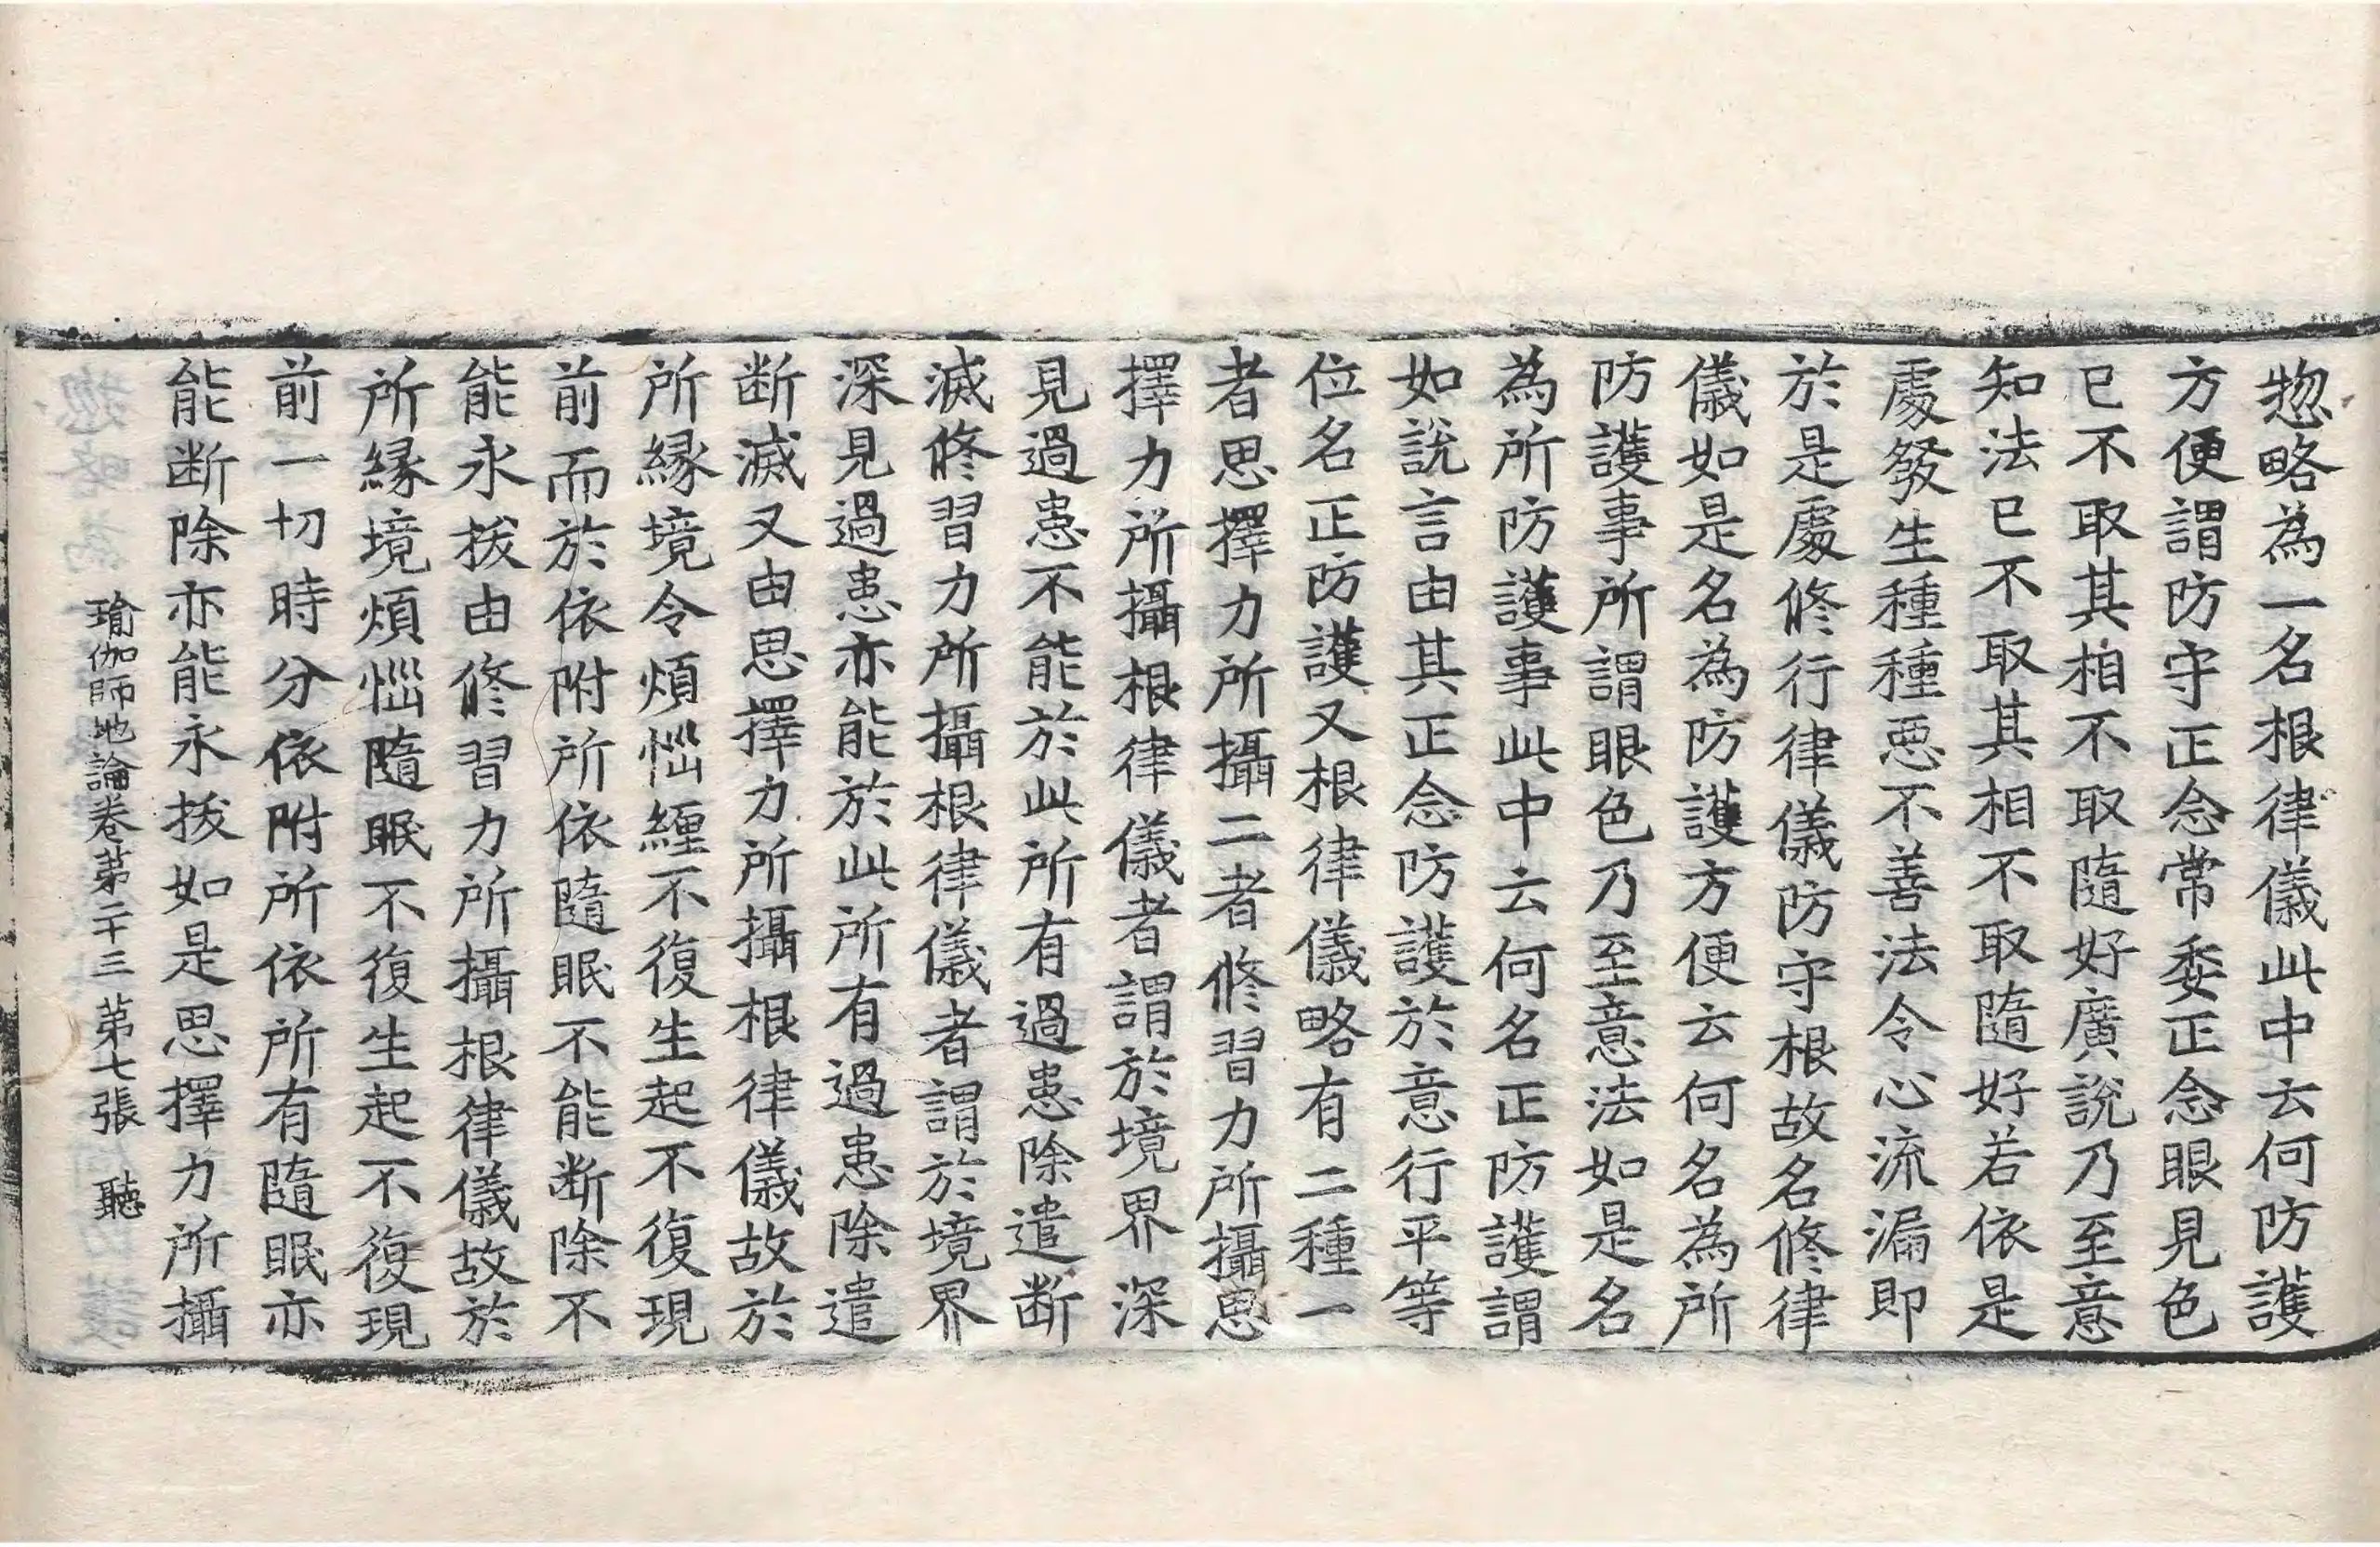 惣略為一名根律儀此中云何防護
方便謂防守正念常委正念眼見色
已不取其相不取隨好廣說乃至意
知法已不取其相不取隨好若依是
處發生種種惡不善法令心流漏即
於是處修行律儀防守根故名修律
儀如是名為防護方便云何名為所
防護事所謂眼色乃至意法如是名
為所防護事此中云何名正防護謂
如說言由其正念防護於意行平等
位名正防護又根律儀略有二種一
者思擇力所攝二者修習力所攝思
擇力所攝根律儀者謂於境界深
見過患不能於此所有過患除遣断
滅修習力所攝根律儀者謂於境界
深見過患亦能於此所有過患除遣
断滅又由思擇力所攝根律儀故於
所緣境令煩惱纏不復生起不復現
前而於依附所依隨眠不能断除不
能永拔由修習力所攝根律儀故於
所緣境煩惱隨眠不復生起不復現
前一切時分依附所依所有隨眠亦
能断除亦能永拔如是思擇力所攝
瑜伽師地論卷第二十三 第七張 聽